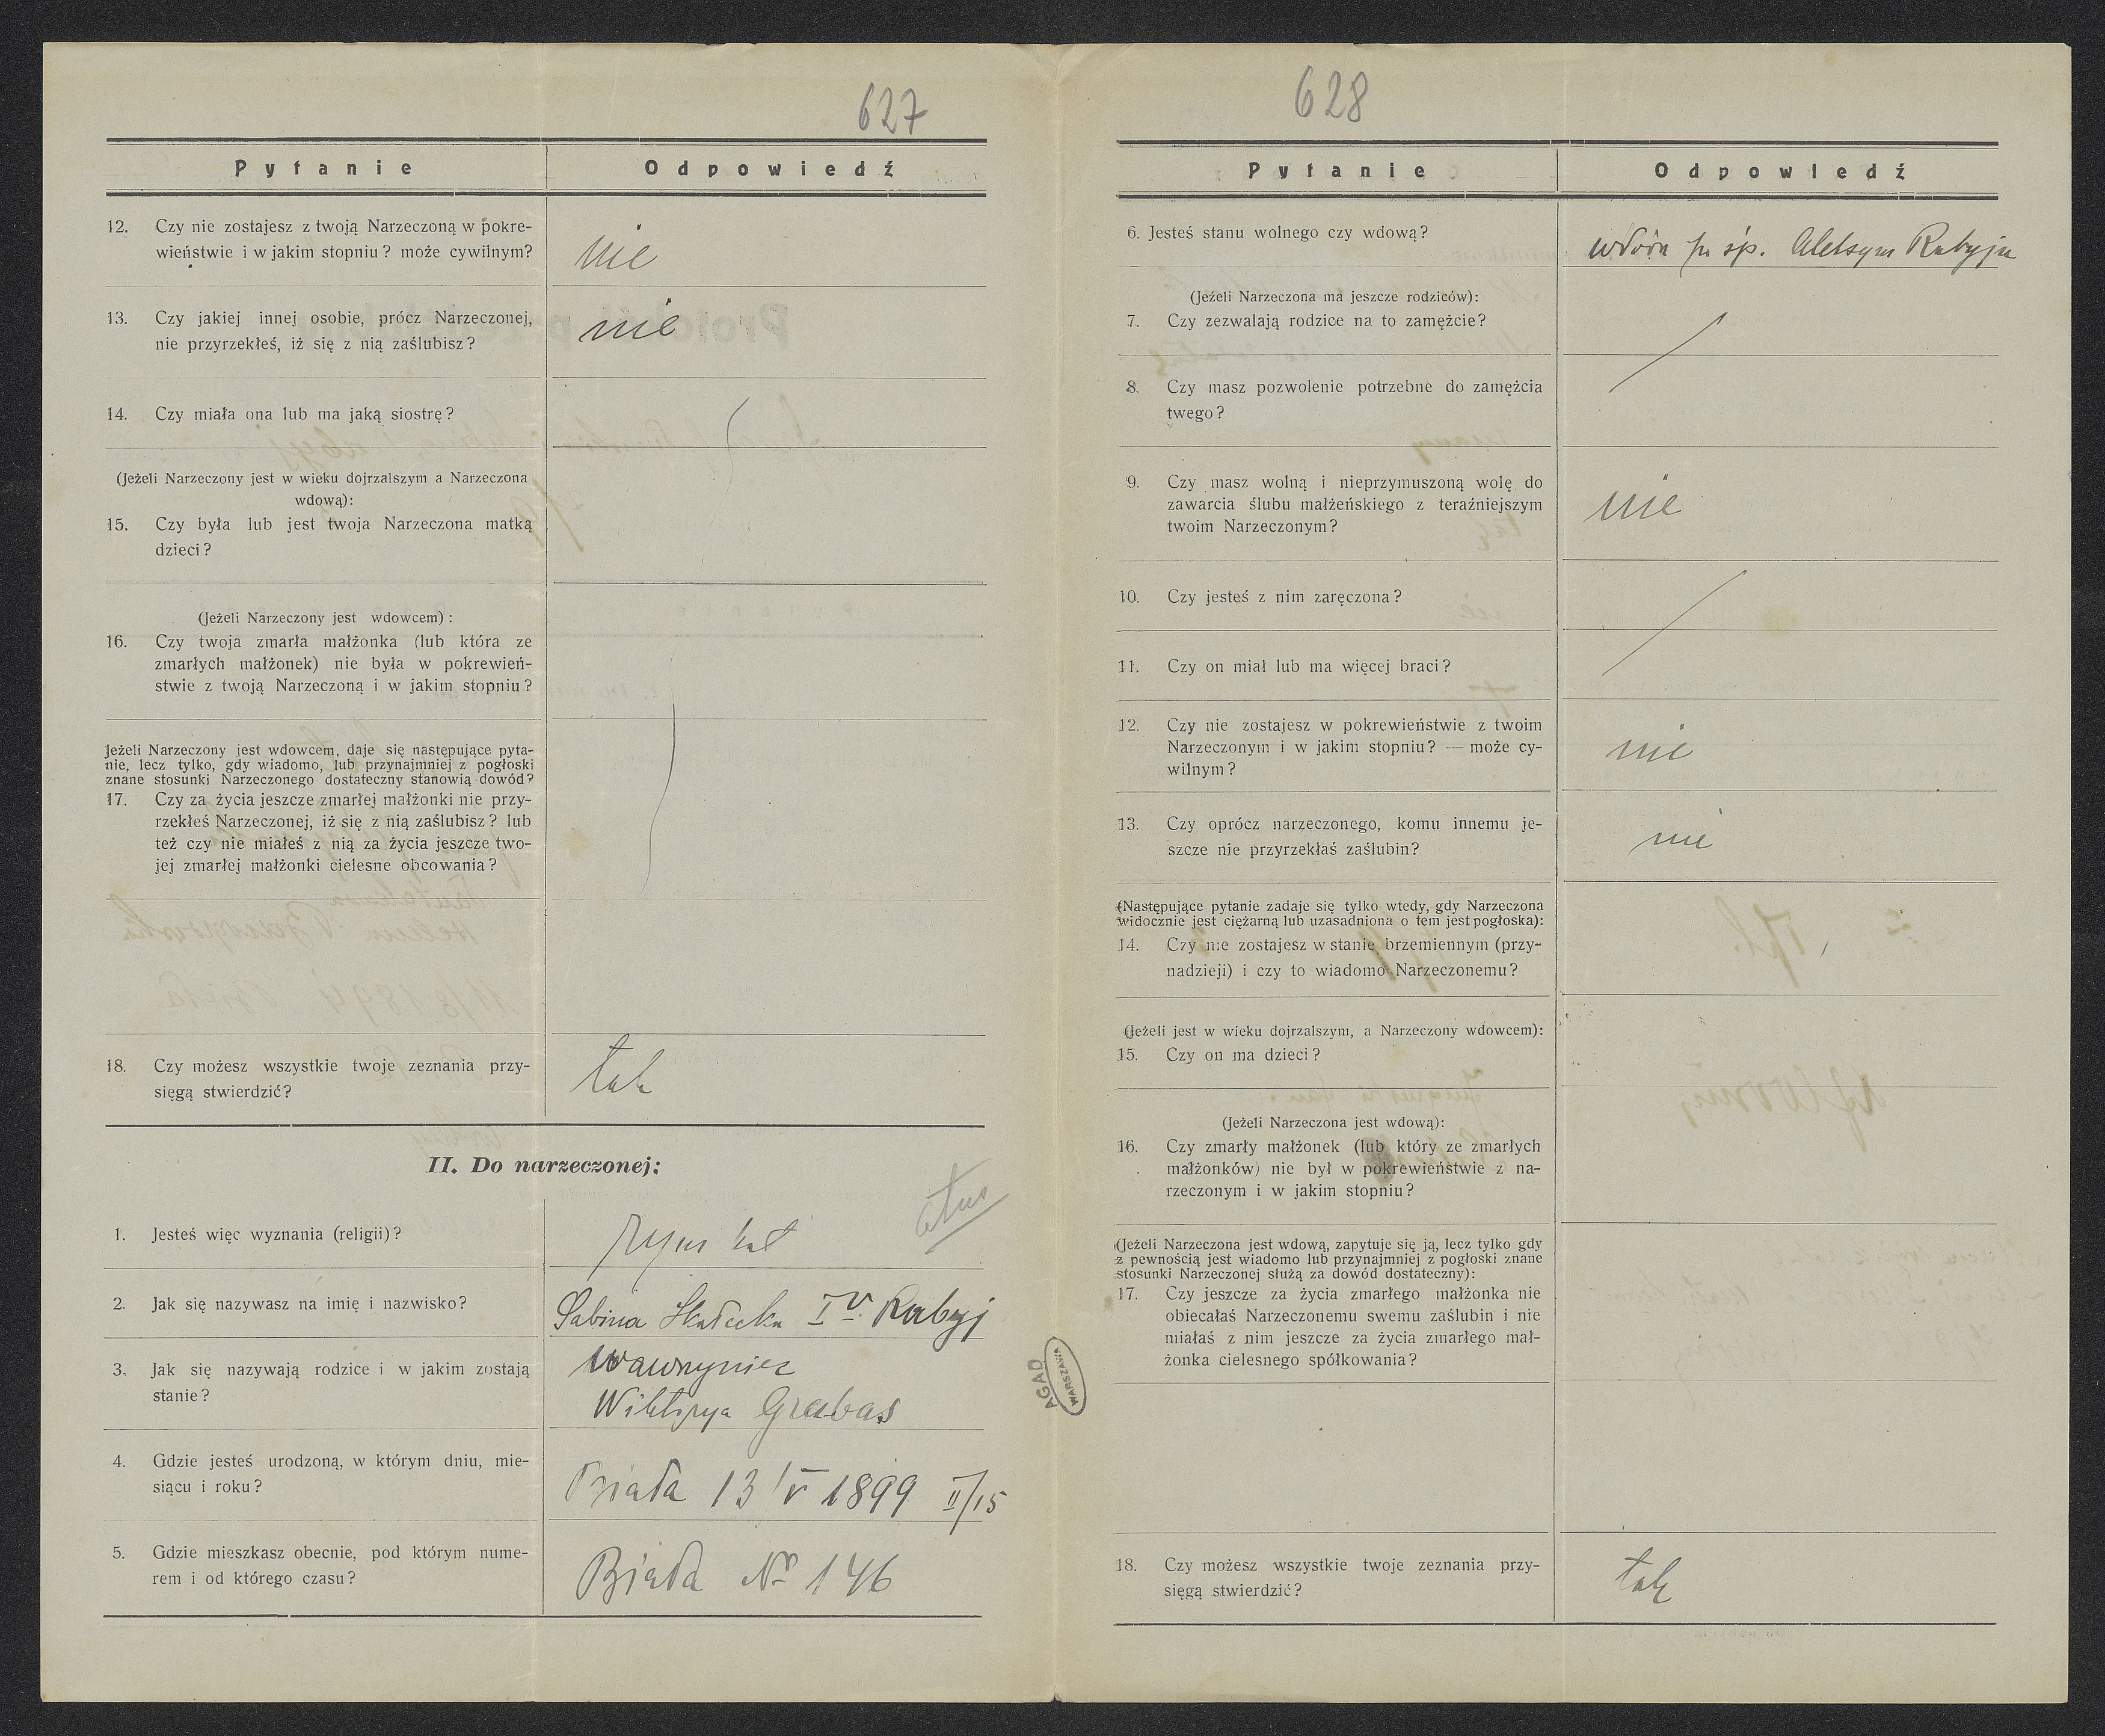 627
Pytanie Odpowiedź
12. Czy nie zostajesz z twoją Narzeczoną w pokre-
wieństwie i w jakim stopniu? może cywilnym? nie
13. Czy jakiej innej osobie, prócz Narzeczonej,
nie przyrzekłeś, iż się z nią zaślubisz? nie
14. Czy miała ona lub ma jaką siostrę?
(Jeżeli Narzeczony jest w wieku dojrzalszym a Narzeczona
wdową):
15. Czy była lub jest twoja Narzeczona matką
dzieci?
(Jeżeli Narzeczony jest wdowcem):
16. Czy twoja zmarła małżonka (lub która ze
zmarłych małżonek) nie była w pokrewień-
stwie z twoją Narzeczoną i w jakim stopniu?
Jeżeli Narzeczony jest wdowcem, daje się następujące pyta-
nie, lecz tylko, gdy wiadomo, lub przynajmniej z pogłoski
znane stosunki Narzeczonego dostateczny stanowią dowód?
17. Czy za życia jeszcze zmarłej małżonki nie przy-
rzekłeś Narzeczonej, iż się z nią zaślubisz? lub
też czy nie miałeś z nią za życia jeszcze two-
jej zmarłej małżonki cielesne obcowania?
18. Czy możesz wszystkie twoje zeznania przy-
sięgą stwierdzić? tak
II. Do narzeczonej:
1. Jesteś więc wyznania (religii)? rzym kat
2. Jak się nazywasz na imię i nazwisko? Sabina Skałecka I v. Rabyj
3. Jak się nazywają rodzice i w jakim zostają Wawrzyniec
stanie? Wiktorya Grabas
4. Gdzie jesteś urodzoną, w którym dniu, mie-
siącu i roku? Biała 13/V 1899 II/15
5. Gdzie mieszkasz obecnie, pod którym nume-
rem i od którego czasu? Biała No 146
AGAD
WARSZAWA
628
Pytanie Odpowiedź
6. Jesteś stanu wolnego czy wdową? wdowa po śp. Aleksym Rabyju
(Jeżeli Narzeczona ma jeszcze rodziców):
7. Czy zezwalają rodzice na to zamężcie?
8. Czy masz pozwolenie potrzebne do zamężcia
twego?
9. Czy masz wolną i nieprzymuszoną wolę do
zawarcia ślubu małżeńskiego z teraźniejszym
twoim Narzeczonym? nie
10. Czy jesteś z nim zaręczona?
11. Czy on miał lub ma więcej braci?
12. Czy nie zostajesz w pokrewieństwie z twoim
Narzeczonym i w jakim stopniu? — może cy-
wilnym? nie
13. Czy oprócz narzeczonego, komu innemu je-
szcze nie przyrzekłaś zaślubin? nie
(Następujące pytanie zadaje się tylko wtedy, gdy Narzeczona
widocznie jest ciężarną lub uzasadniona o tem jest pogłoska):
14. Czy nie zostajesz w stanie brzemiennym (przy-
nadzieji) i czy to wiadomo Narzeczonemu?
(Jeżeli jest w wieku dojrzalszym, a Narzeczony wdowcem):
15. Czy on ma dzieci?
(Jeżeli Narzeczona jest wdową):
16. Czy zmarły małżonek (lub który ze zmarłych
małżonków) nie był w pokrewieństwie z na-
rzeczonym i w jakim stopniu?
(Jeżeli Narzeczona jest wdową, zapytuje się ją, lecz tylko gdy
z pewnością jest wiadomo lub przynajmniej z pogłoski znane
stosunki Narzeczonej służą za dowód dostateczny):
17. Czy jeszcze za życia zmarłego małżonka nie
obiecałaś Narzeczonemu swemu zaślubin i nie
miałaś z nim jeszcze za życia zmarłego mał-
żonka cielesnego spółkowania?
18. Czy możesz wszystkie twoje zeznania przy-
sięgą stwierdzić? tak